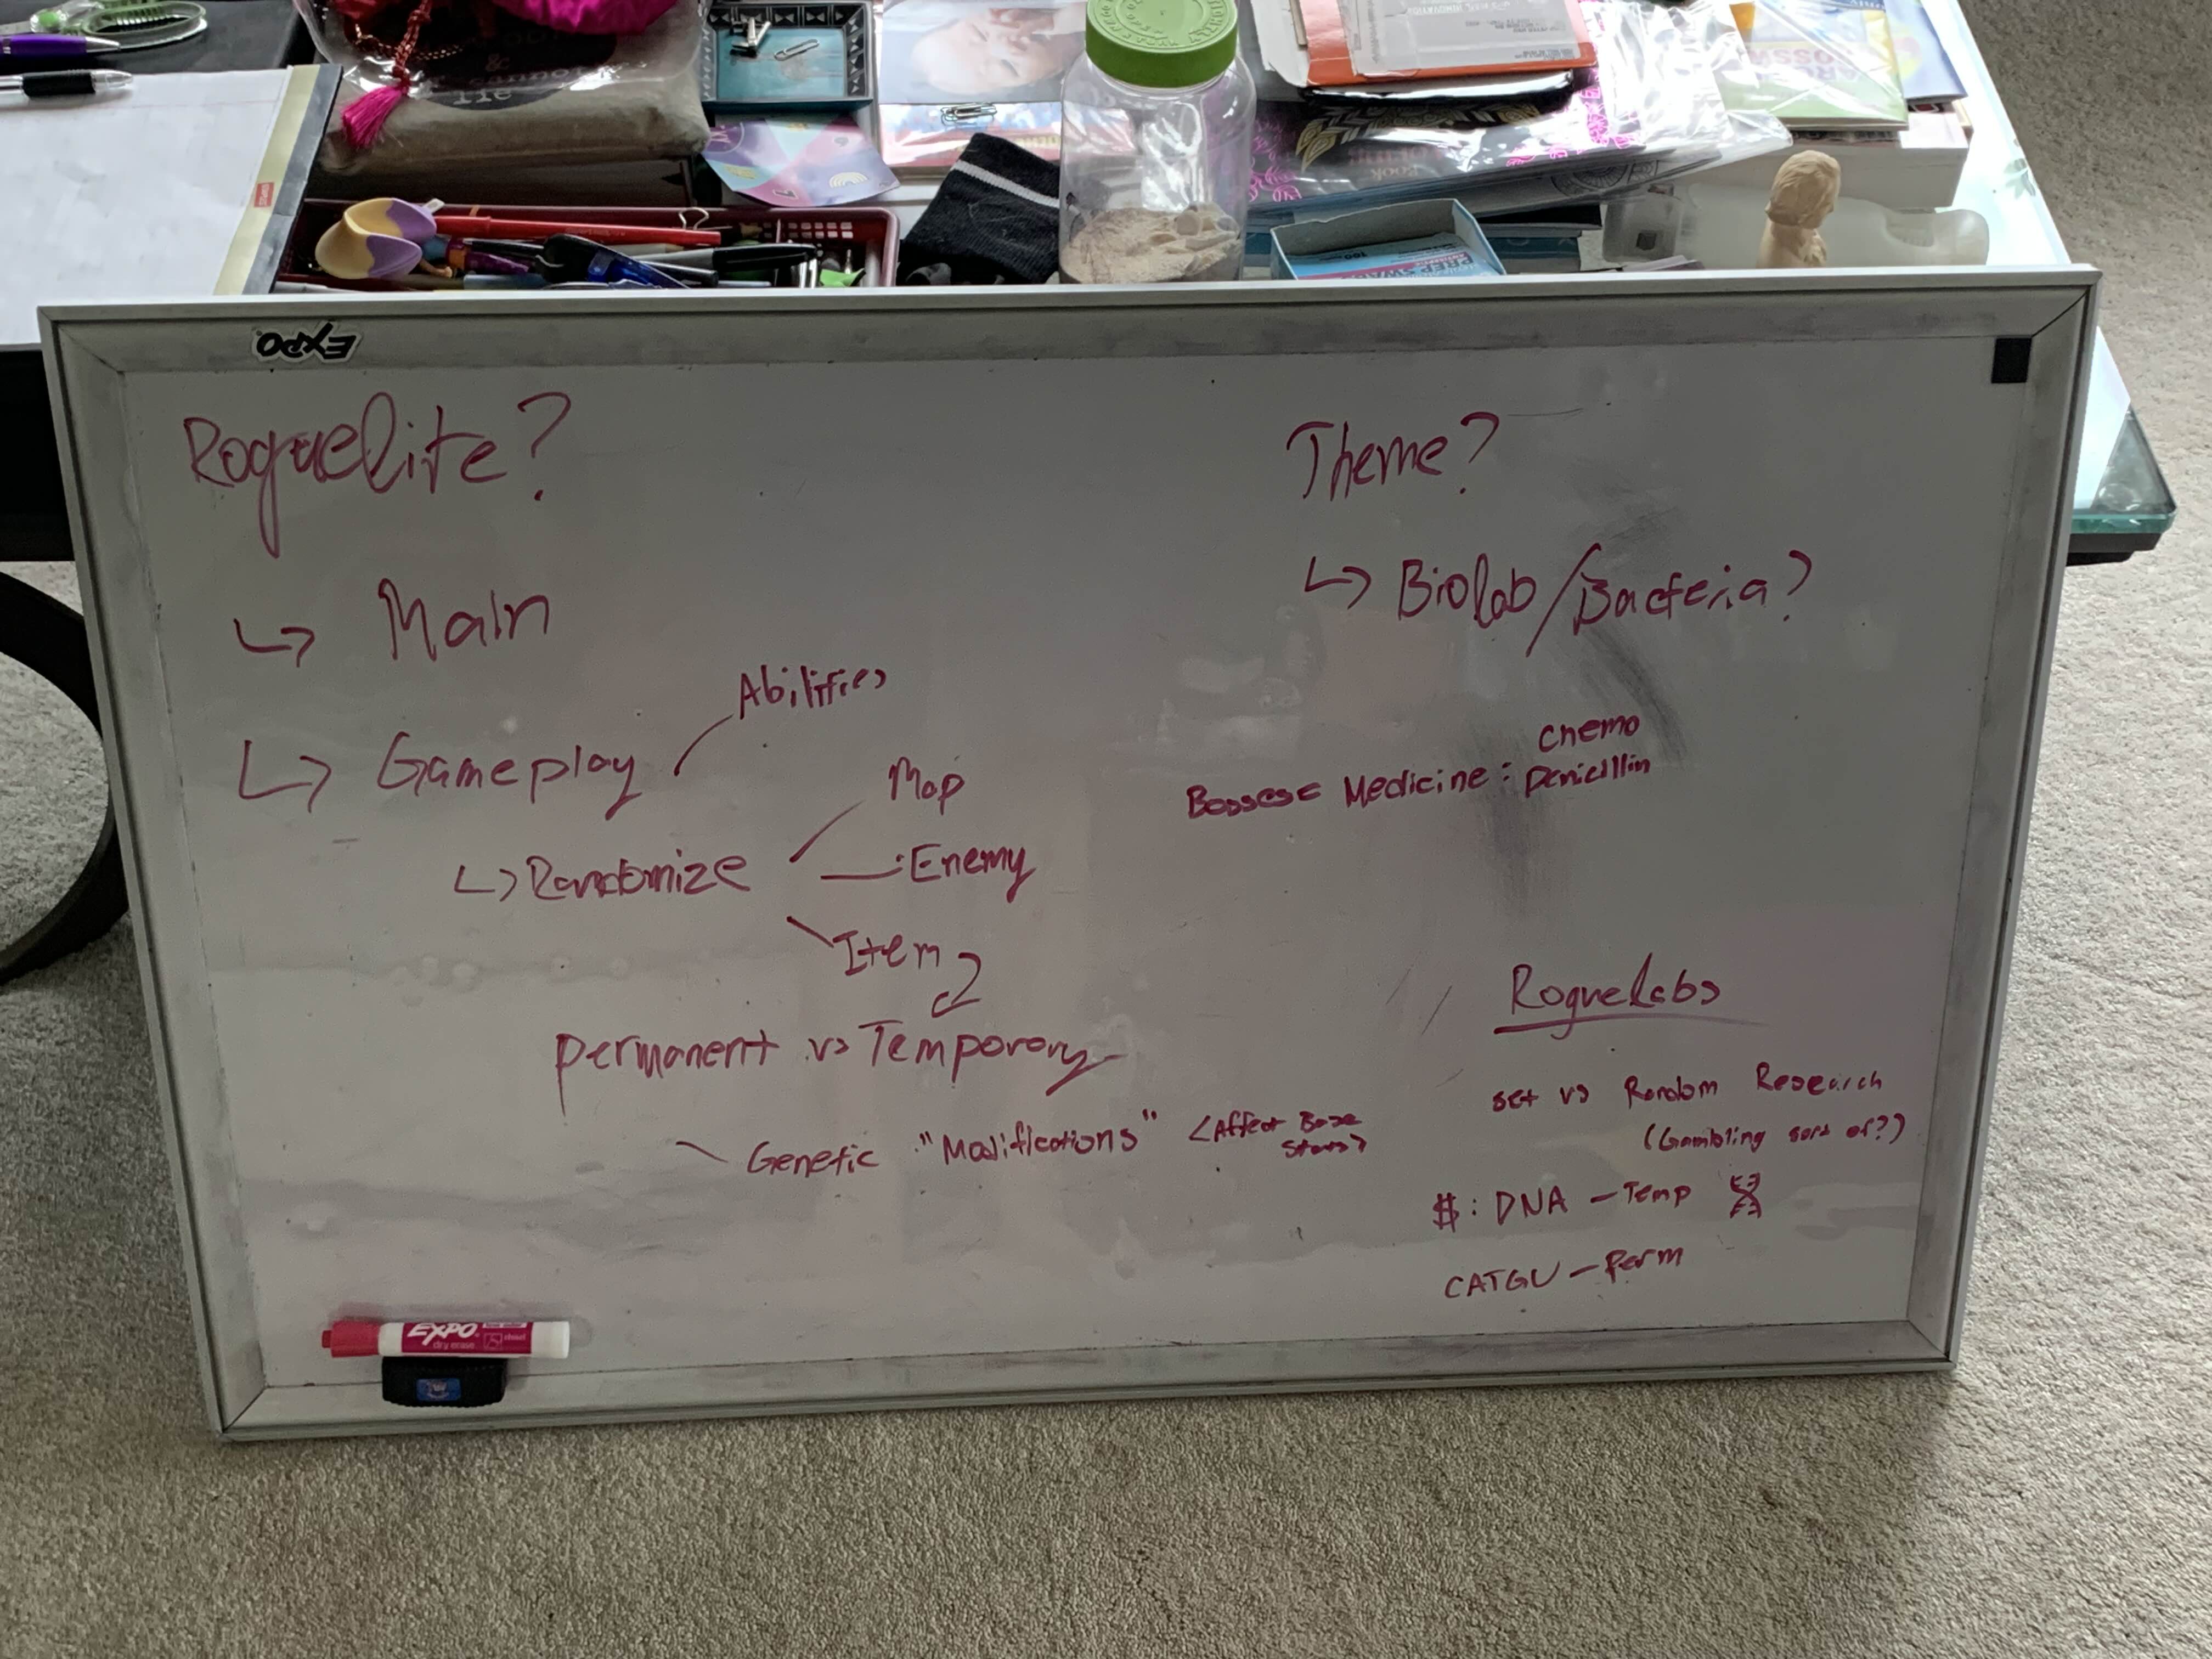 & cannot
lie
PREP SWAB
EXPO
Roguelite?
↳ Main
↳ Gameplay
Abilities
↳ Randomize
Map
Enemy
Item
Permanent vs Temporary
Genetic "Modifications" <Affect Base
Stats>
Theme?
↳ Biolab/Bacteria?
Bosses = Medicine : chemo
penicillin
RogueLabs
set vs Random Research
(Gambling sort of?)
$ : DNA - Temp
CATGU - Perm
EXPO
dry erase